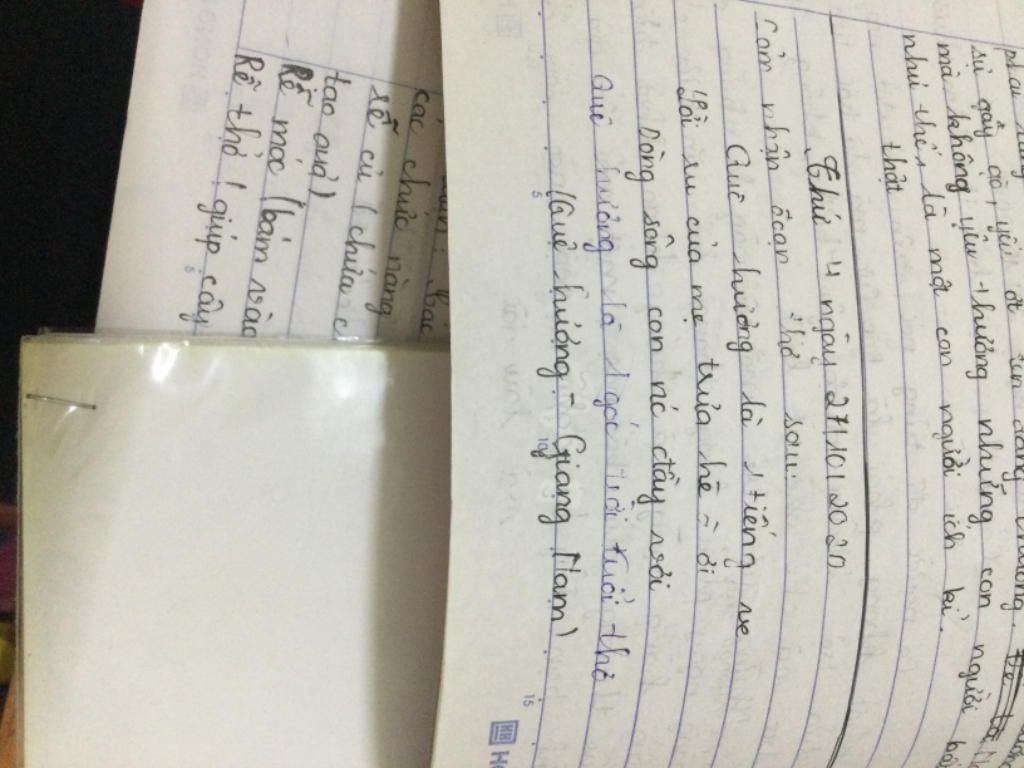 sự gầy gò, yếu ớt
mà không yêu thương những con người
như thế, là một con người ích kỉ.
thật
Thứ 4 ngày 27/10/2020
Cảm nhận đoạn thơ sau:
Quê hương là 1 tiếng ve
Lời ru của mẹ trưa hè à ơi
Dòng sông con nc đầy vơi
Quê hương là 1 góc trời tuổi thơ
(Quê hương - Giang Nam)
5
10
15
các chức năng
rễ củ (chứa
tạo quả)
Rễ móc (bám vào
Rễ thở (giúp cây
5